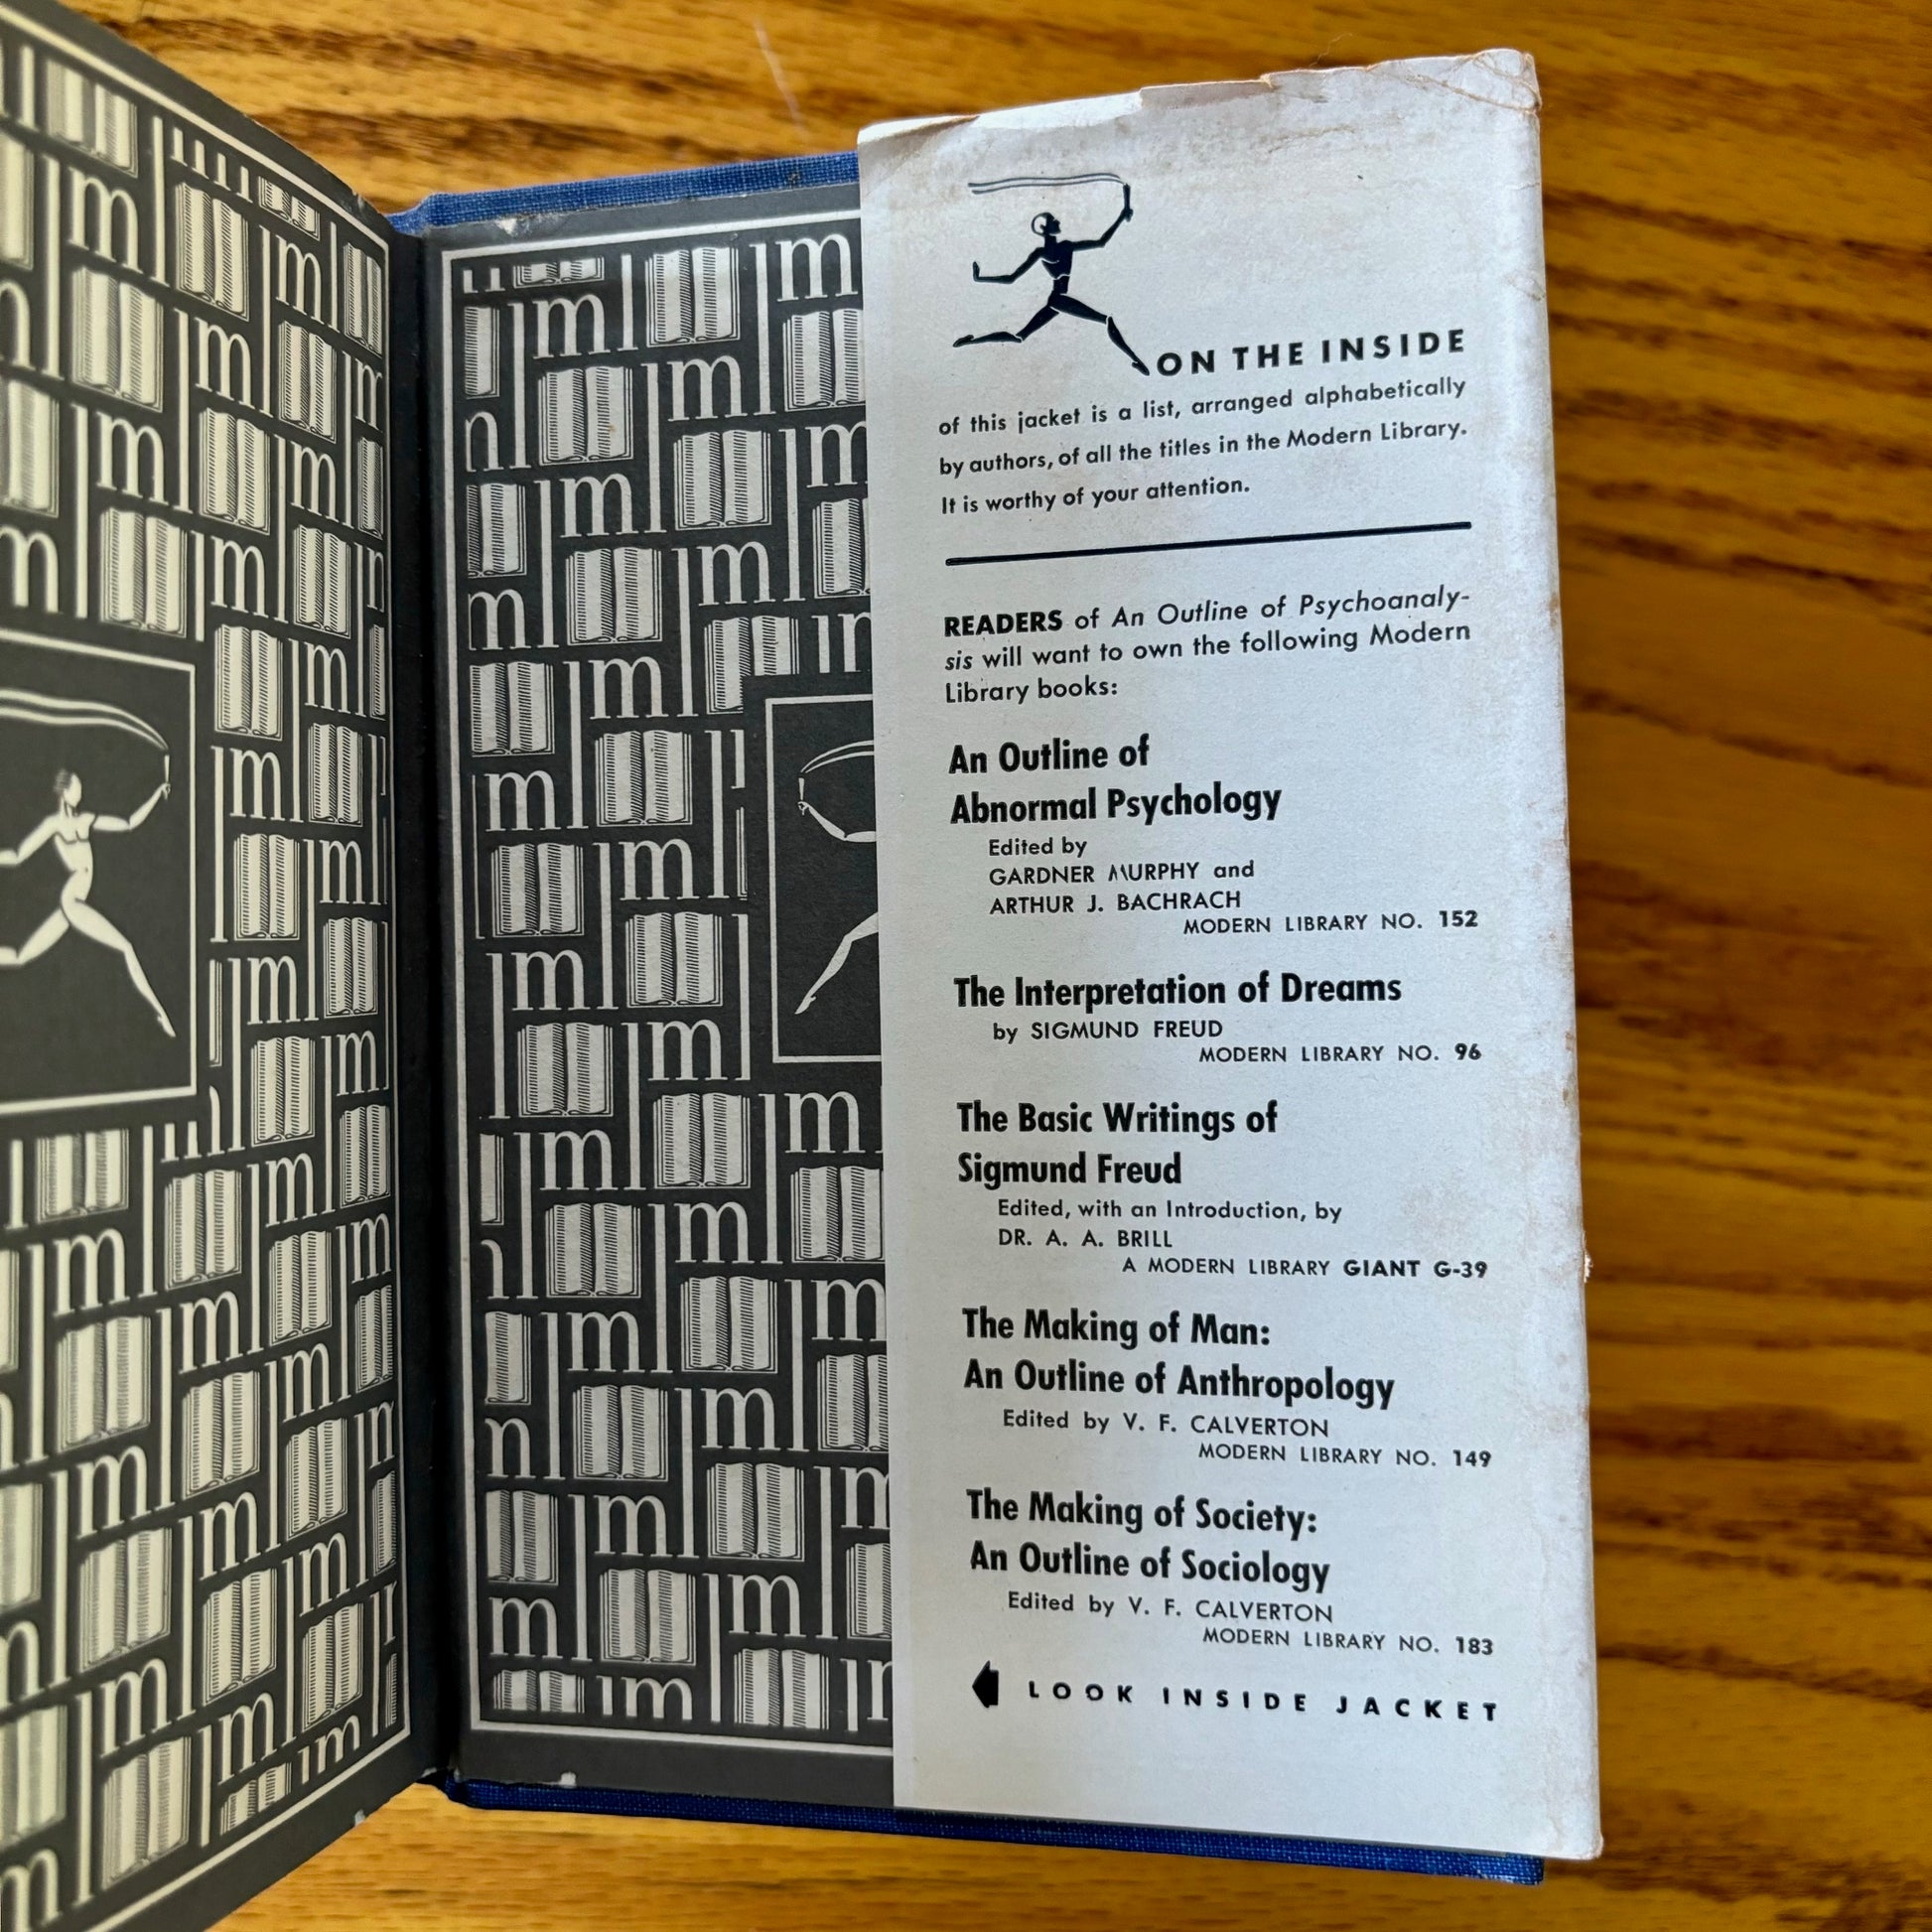 ON THE INSIDE
of this jacket is a list, arranged alphabetically
by authors, of all the titles in the Modern Library.
It is worthy of your attention.
READERS of An Outline of Psychoanaly-
sis will want to own the following Modern
Library books:
An Outline of
Abnormal Psychology
Edited by
GARDNER MURPHY and
ARTHUR J. BACHRACH
MODERN LIBRARY NO. 152
The Interpretation of Dreams
by SIGMUND FREUD
MODERN LIBRARY NO. 96
The Basic Writings of
Sigmund Freud
Edited, with an Introduction, by
DR. A. A. BRILL
A MODERN LIBRARY GIANT G-39
The Making of Man:
An Outline of Anthropology
Edited by V. F. CALVERTON
MODERN LIBRARY NO. 149
The Making of Society:
An Outline of Sociology
Edited by V. F. CALVERTON
MODERN LIBRARY NO. 183
LOOK INSIDE JACKET